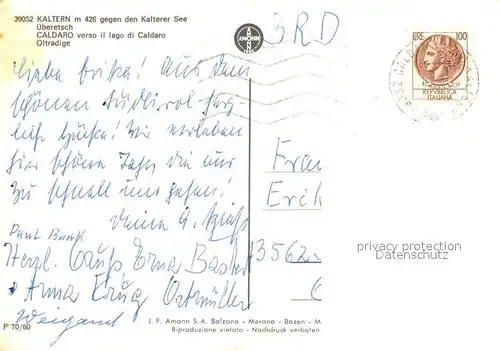 39052 KALTERN m 426 gegen den Kalterer See
Überetsch
CALDARO verso il lago di Caldaro
Oltradige
AMONN
BRD
LIRE 100
REPVBBLICA
ITALIANA
Liebe Erika! Aus dem
schönen Südtirol herz-
liche Grüße! Wir verleben
hier schöne Tage die nur
zu schnell uns gehen!
Deine
Frau
Erik
Paul Bunk
Herzl. Gruß, Erna Basler
3562
+ Anna Krug Ortmüller
Weigand
privacy protection
Datenschutz
P 70/60
J. F. Amonn S. A. Bolzano - Merano - Bozen - M
Riproduzione vietata - Nachdruck verboten